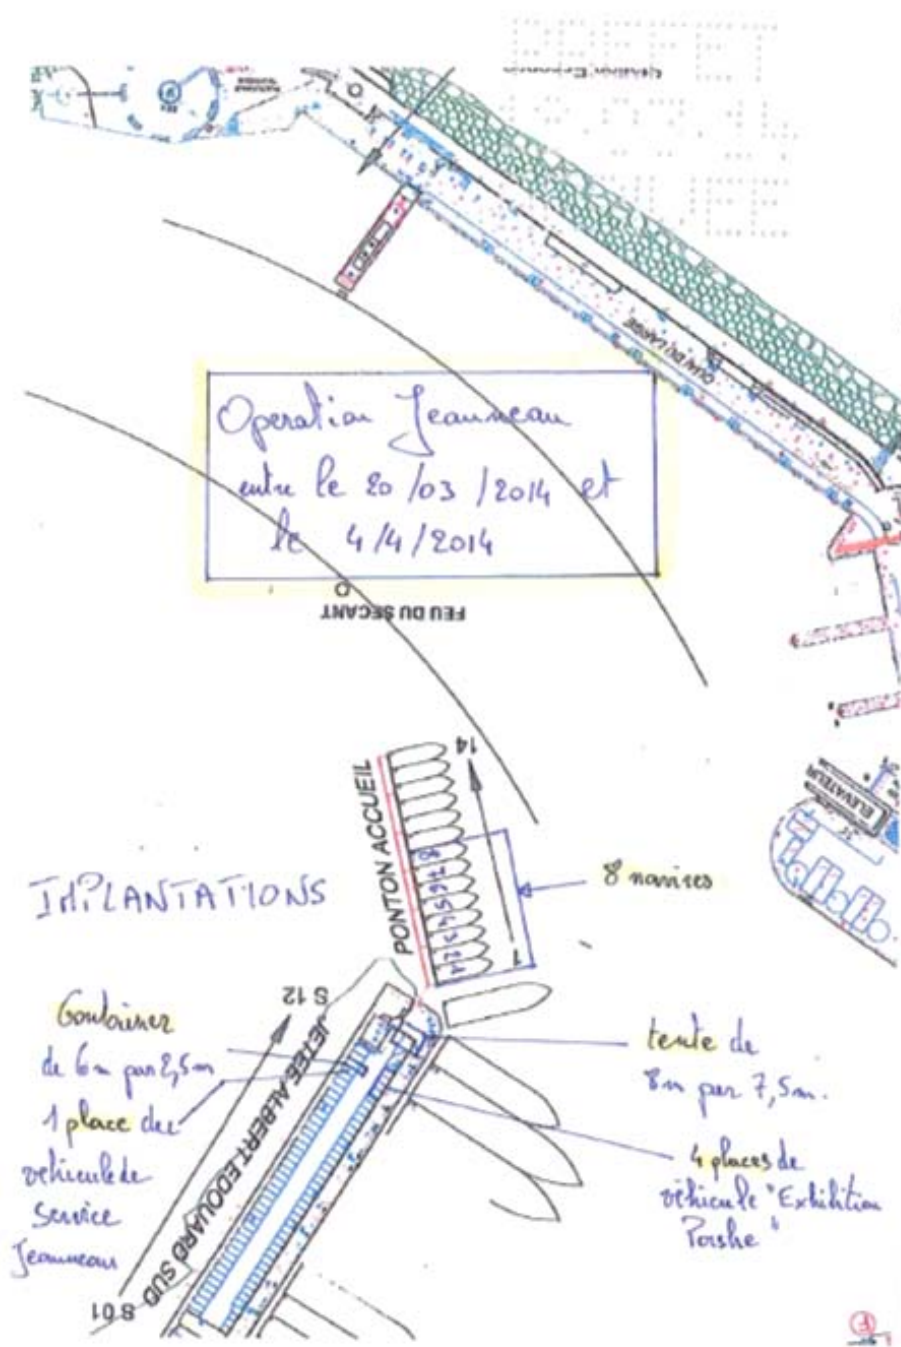 Operation Jeanneau
entre le 20/03/2014 et
le 4/4/2014
FEU DU SECANT
QUAI DU LARGE
ELEVATEUR
14
PONTON ACCUEIL
8 navires
8
7
6
5
4
3
2
1
1
IMPLANTATIONS
S 12
JETEE ALBERT EDOUARD SUD
S 01
Container
de 6m par 2,5m
1 place de
véhicule de
Service
Jeanneau
tente de
8m par 7,5m.
4 places de
véhicule "Exhibition
Porshe"
F